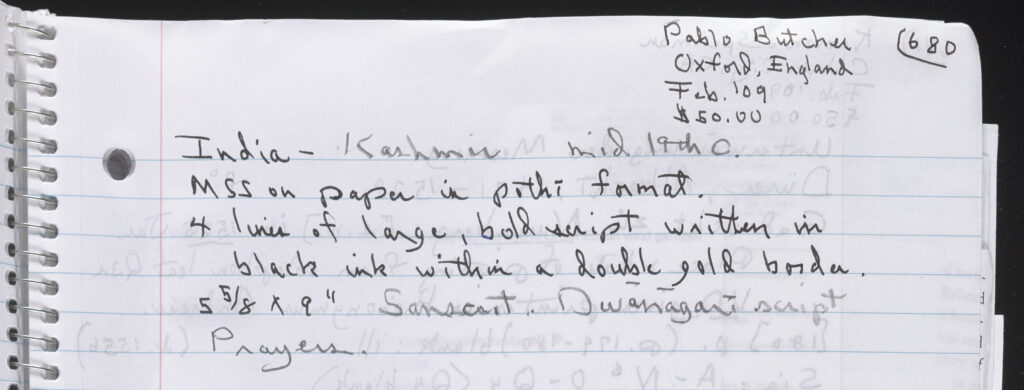 Pablo Butcher
Oxford, England
Feb. '09
$50.00
1680
India - Kashmir mid 19th C.
MSS on paper in pothī format.
4 lines of large, bold script written in
black ink within a double gold border.
5 5/8 x 9" Sanscrit. Dwānagarī script
Prayers.